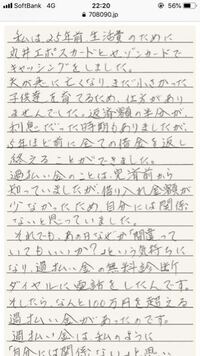 SoftBank 4G 22:20 63%
708090.jp
私は、25年前 生活費のために
丸井エポスカードとセゾンカードで
キャッシングをしました。
夫が急に亡くなり、まだ小さかった
子供達を育てるため、仕方があり
ませんでした。返済額の半分が
利息だった時期もありましたが、
5年ほど前に全ての借金を返し
終えることができました。
過払い金のことは、完済前から
知っていましたが、借り入れ金額が
少なかったため、自分には関係
ないと思っていました。
それでも、あの日なぜか「間違って
いてもいいか?」という気持ちに
なり、過払い金の無料診断
ダイヤルに電話をしたんです。
そしたら、なんと100万円を超える
過払い金があったのです。
過払い金は、私のように
「自分には関係ない」と思い